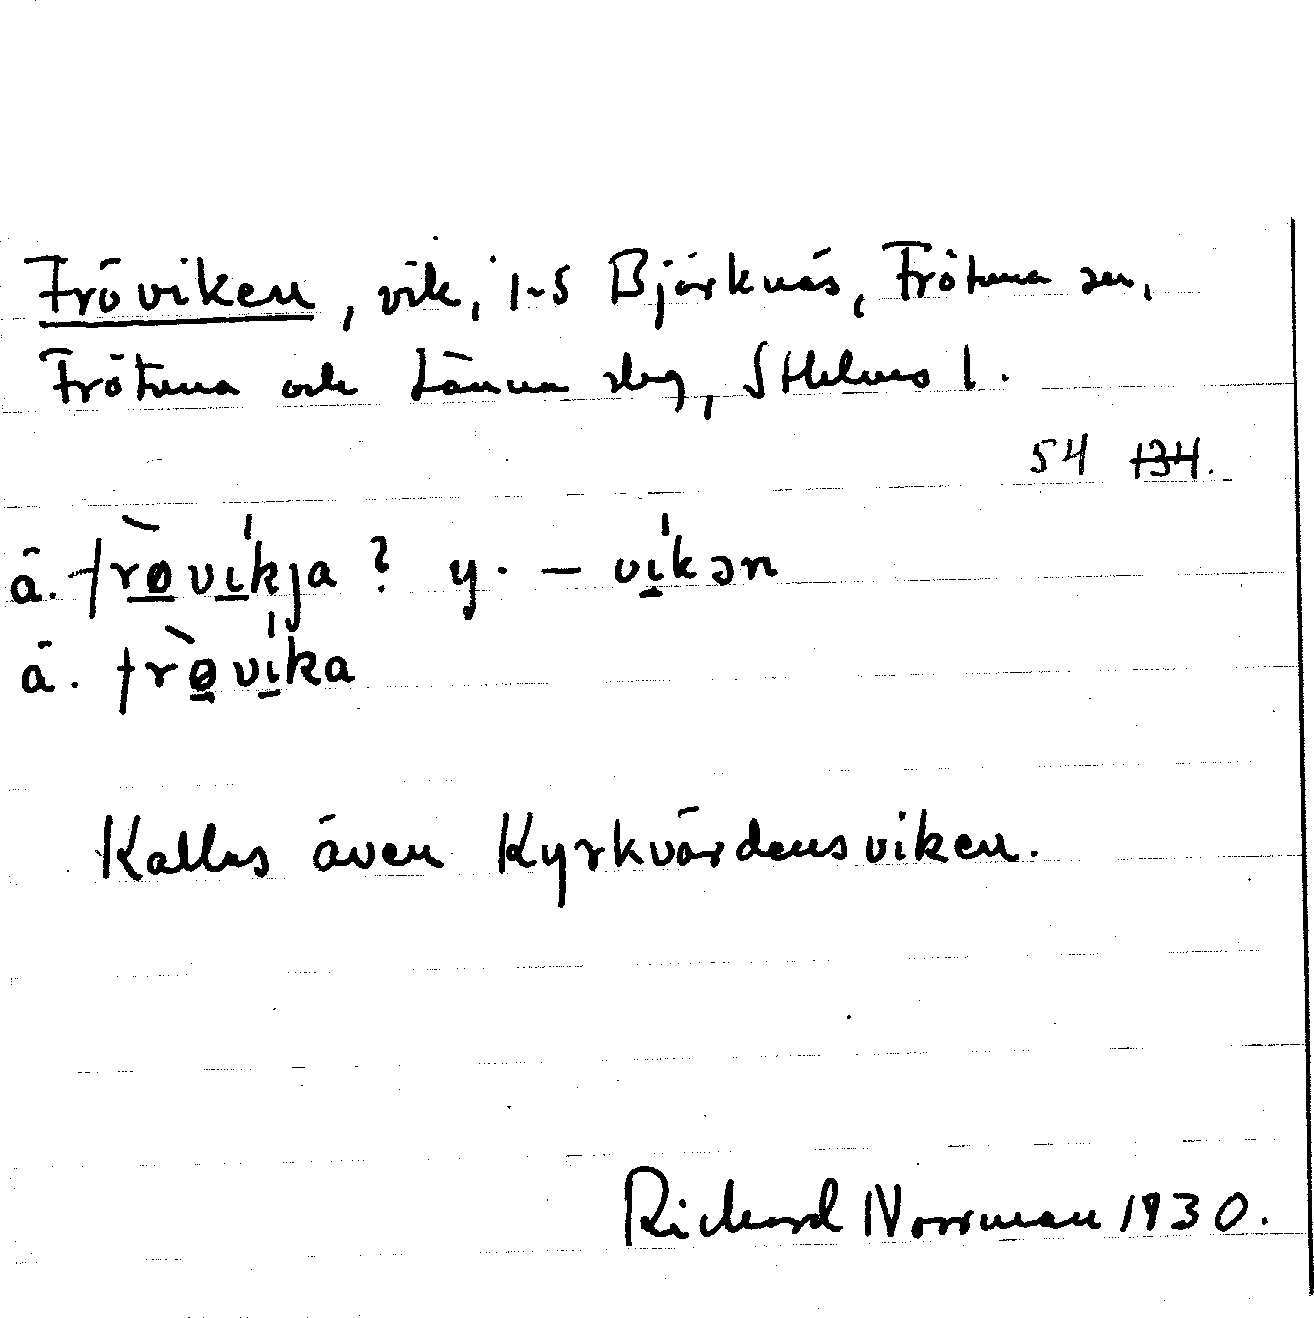 Fröviken, vik, 1-5 Björknäs, Frötuna sn,
Frötuna och Länna skg, Sthlms l.
54 134.
ä. frø̀vi̍kja? y. - vi̍kən
ä. frø̀vi̍ka
Kallas även Kyrkvärdensviken.
Rickard Norrman 1930.